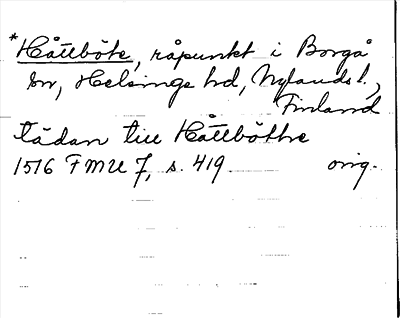 *Hållböte, råpunkt i Borgå
sn, Helsinge hd, Nylands l.,
Finland
tädan till Hållböthe
1516 FMU 7, s. 419 orig.